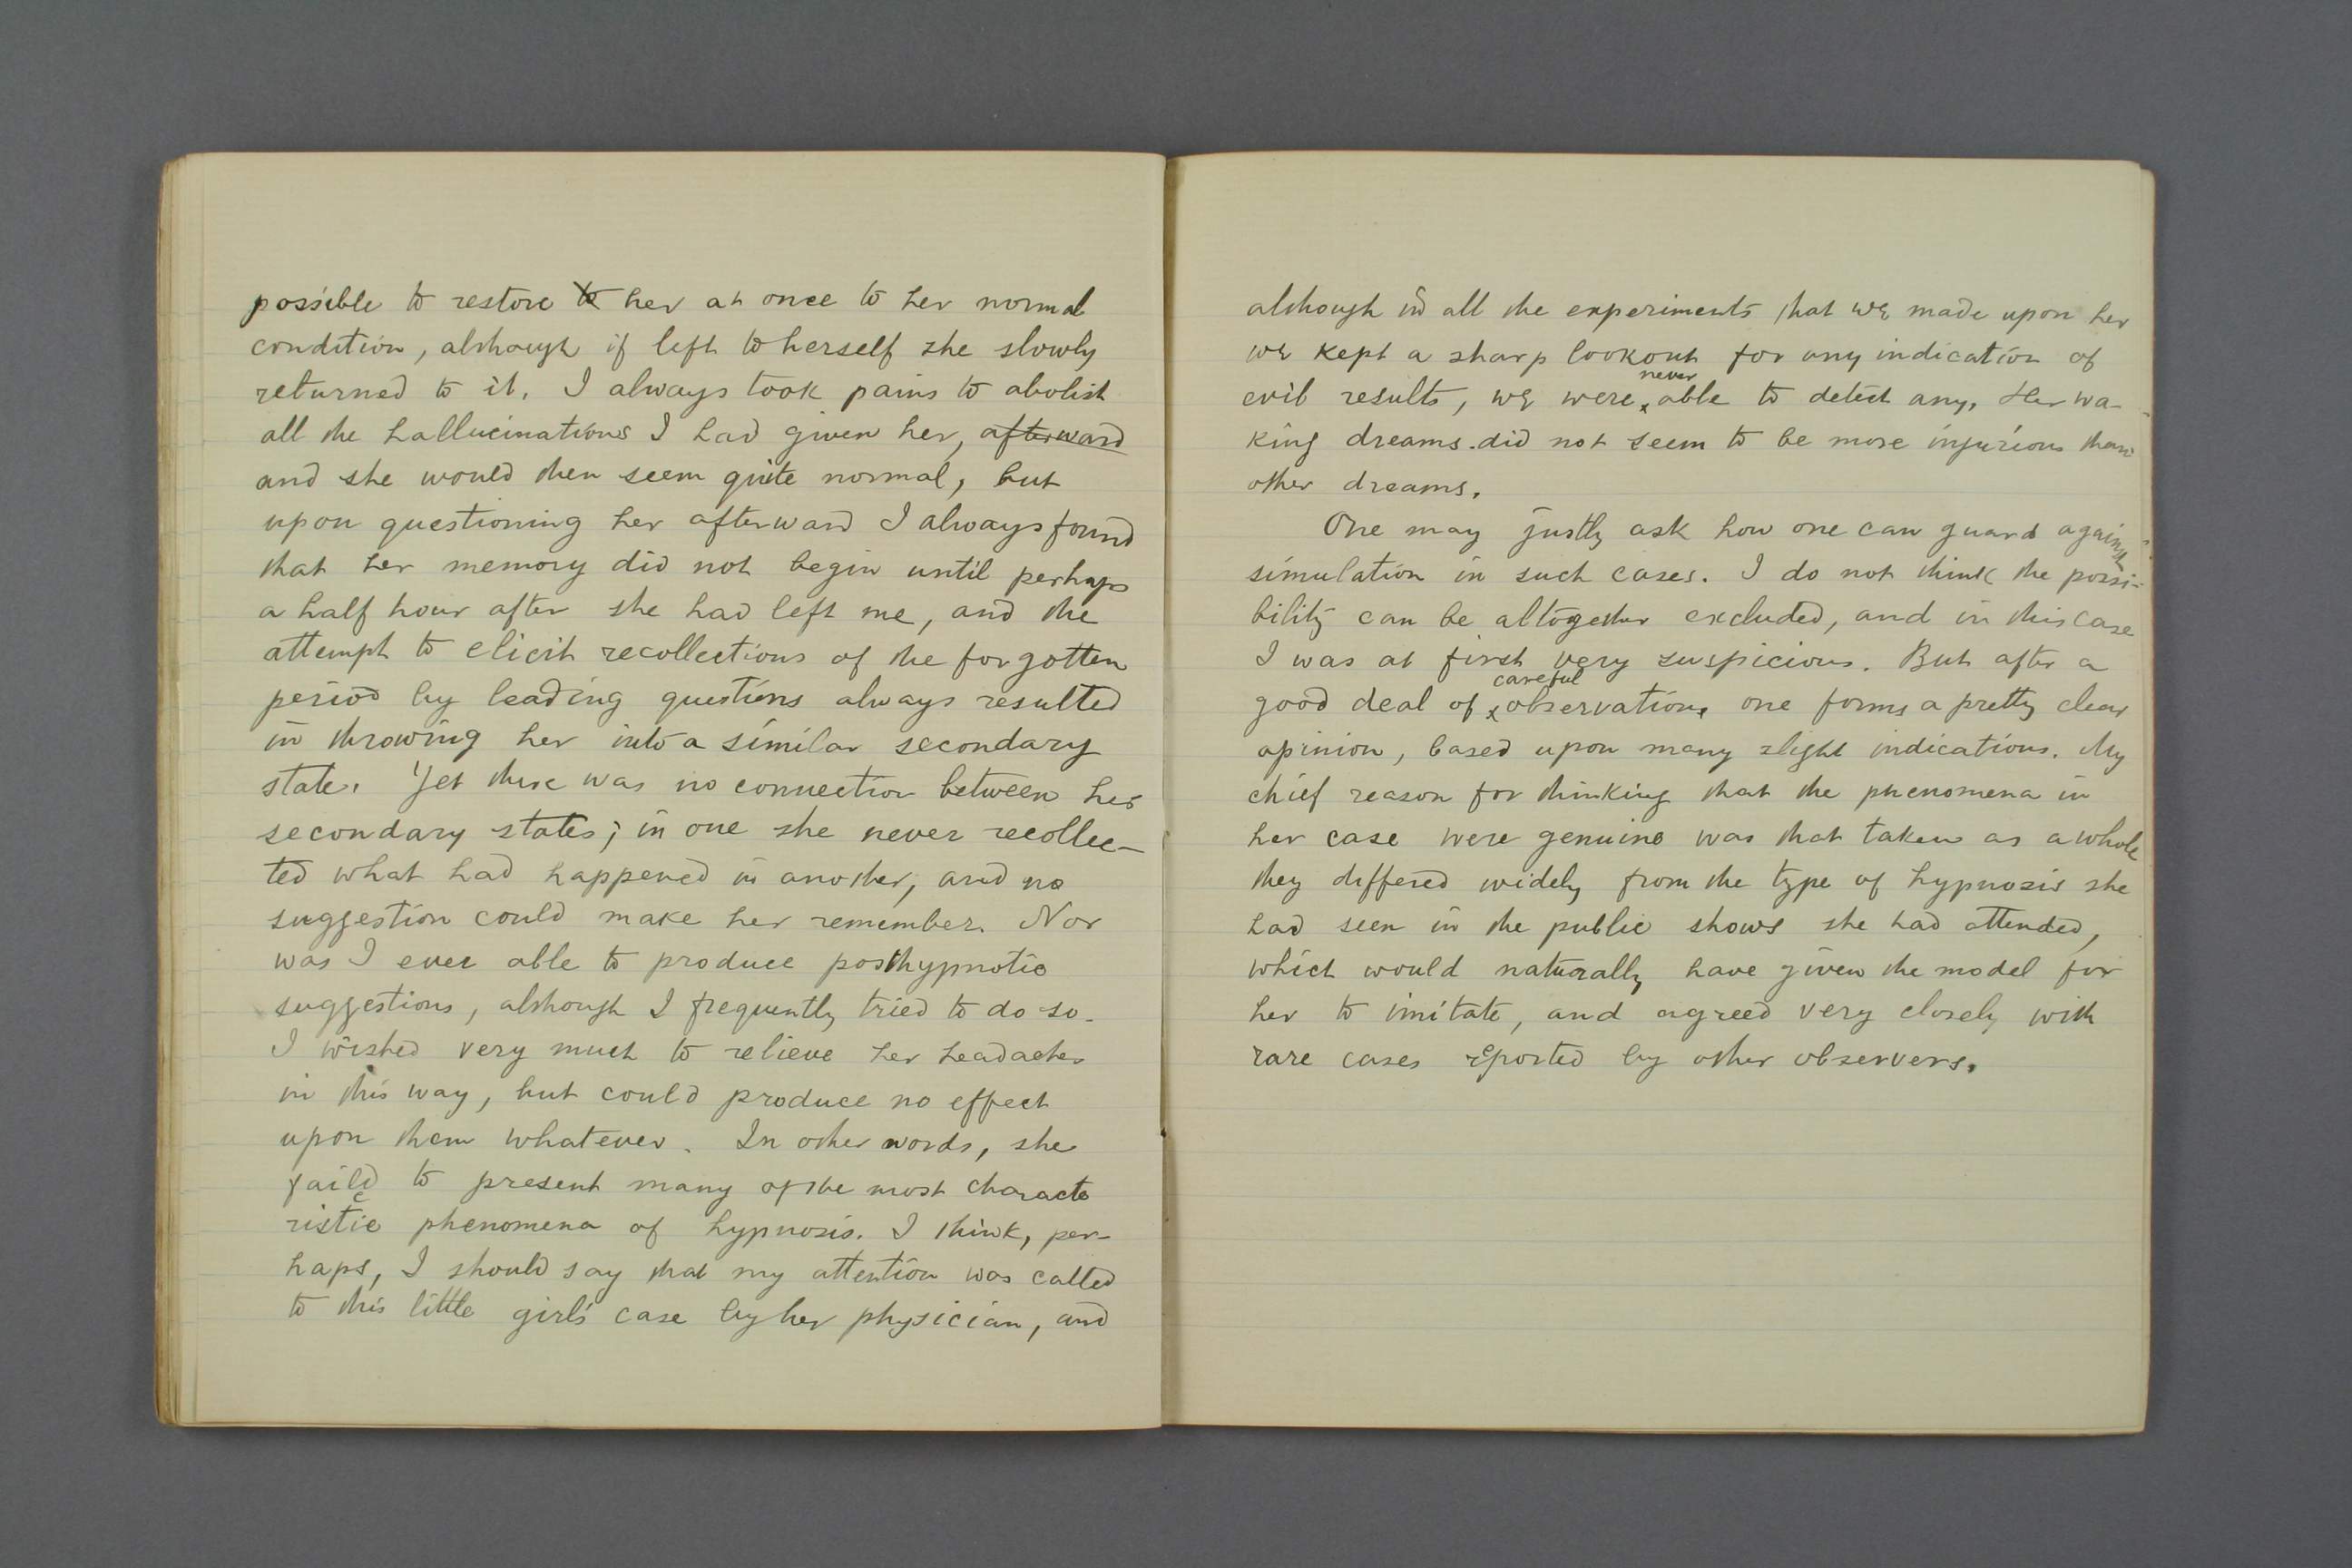 possible to restore to her at once to her normal
condition, although if left to herself she slowly
returned to it. I always took pains to abolish
all the hallucinations I had given her, afterward
and she would then seem quite normal, but
upon questioning her afterward I always found
that her memory did not begin until perhaps
a half hour after she had left me, and the
attempt to elicit recollections of the forgotten
period by leading questions always resulted
in throwing her into a similar secondary
state. Yet there was no connection between her
secondary states; in one she never recollec-
ted what had happened in another, and no
suggestion could make her remember. Nor
was I ever able to produce posthypnotic
suggestions, although I frequently tried to do so.
I wished very much to relieve her headaches
in this way, but could produce no effect
upon them whatever. In other words, she
failed to present many of the most characte
ristic phenomena of hypnosis. I think, per-
haps, I should say that my attention was called
to this little girl's case by her physician, and
although in all the experiments that we made upon her
we kept a sharp lookout for any indication of
never
evil results, we were able to detect any. Her wa-
king dreams did not seem to be more injurious than
other dreams.
One may justly ask how one can guard against
simulation in such cases. I do not think the possi-
bility can be altogether excluded, and in this case
I was at first very suspicious. But after a
careful
good deal of observation, one forms a pretty clear
opinion, based upon many slight indications. My
chief reason for thinking that the phenomena in
her case were genuine was that taken as a whole
they differed widely from the type of hypnosis she
had seen in the public shows she had attended,
which would naturally have given the model for
her to imitate, and agreed very closely with
rare cases reported by other observers.